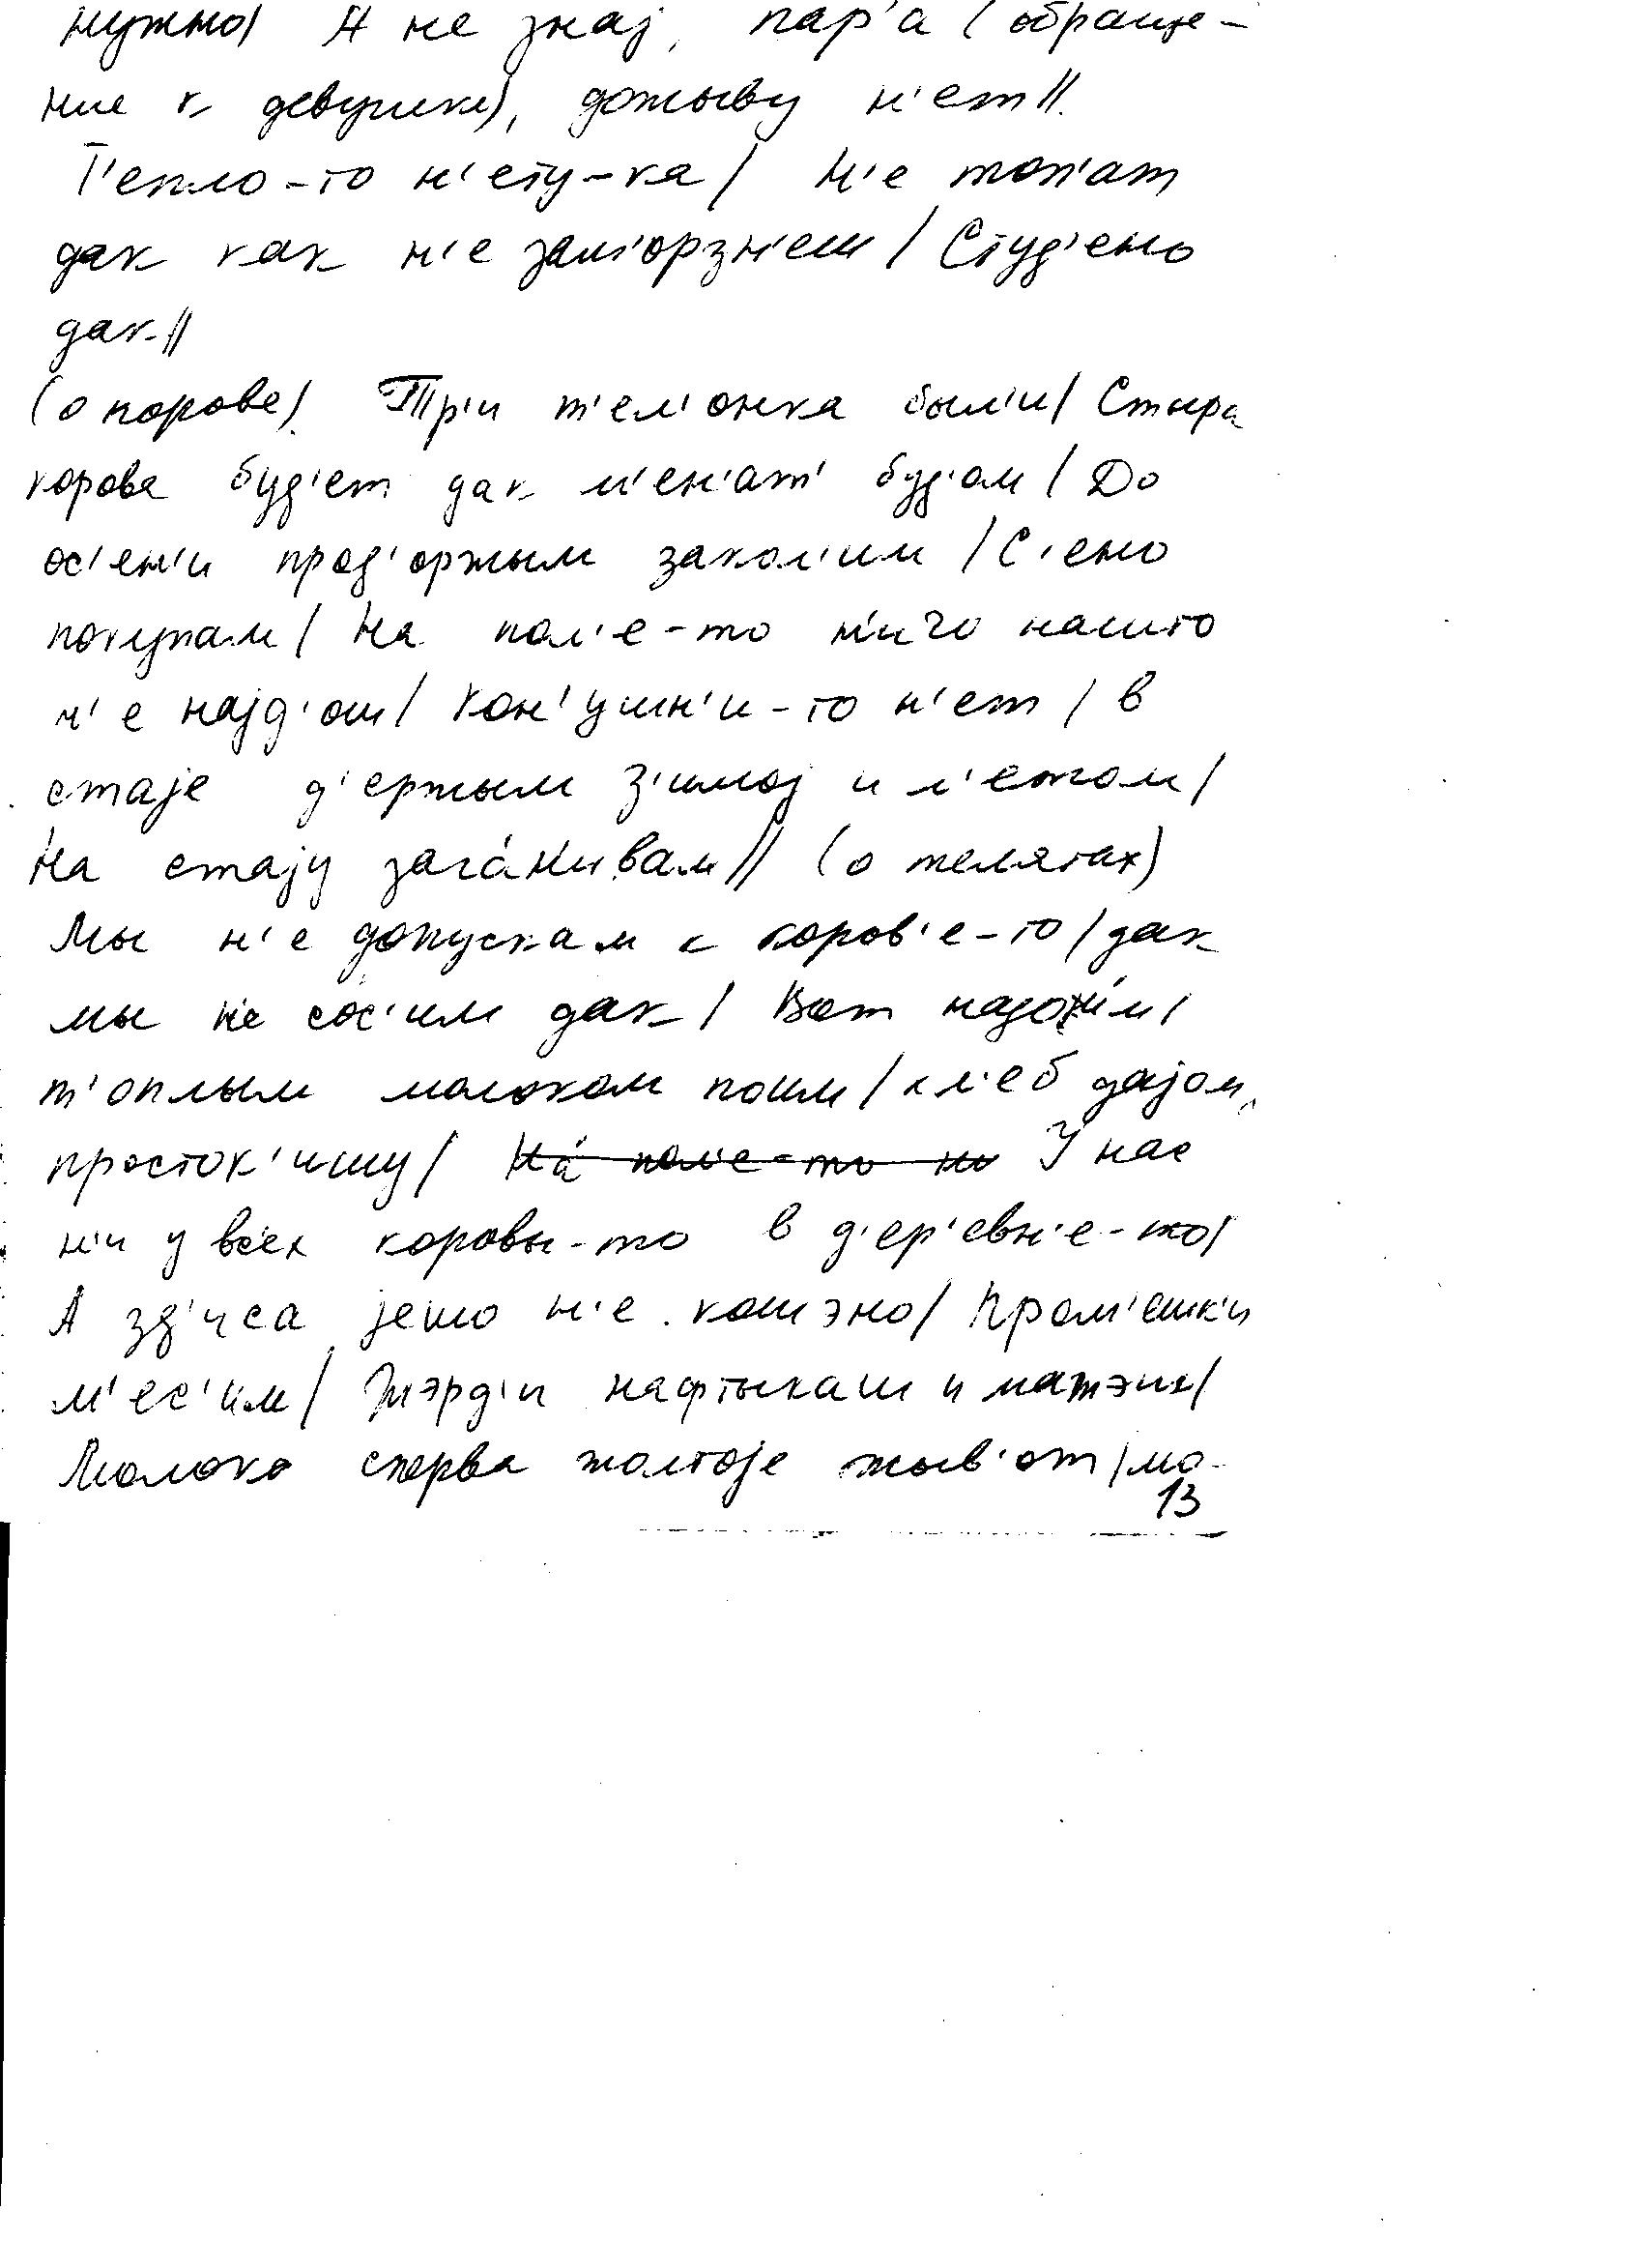 нужно/ А не знај, пар'а (обраще-
ние к девушке), дожыву н'ет//.
Т'епло-то н'ету-ка/ Н'е топ'ат
дак как н'е зам'орзн'еш/ Студ'ено
дак//
(о корове). Тр'и т'ел'онка был'и/ Стыра
корова буд'ет дак м'ен'ат' буд'ом/ До
ос'ен'и прод'оржым закол'им/ С'ено
покупам/ На пол'е-то н'иго нашто
н'е најд'ош/ Кон'ушн'и-то н'ет/ в
стаје д'ержым з'имој и л'етом/
На стају зага́нивам// (о телятах)
Мы н'е допускам к коров'е-то/ дак
мы н'е сос'им дак/ Вот надојим/
т'оплым молоком поим/ хл'еб дајом,
просток'ишу/ На пол'е-то ни У нас
н'и у всех коровы-то в д'ер'евн'е-то/
А зд'иса јешо н'е кошэно/ Кром'ешк'и
м'ес'им/ Жэрд'и нафтыкаш и мажэш/
Молоко сперва жолтоје жыв'от/ мо-
13